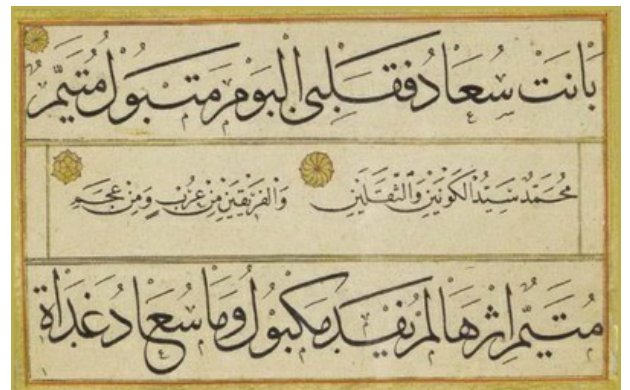 بَانَتْ سُعَادُ فَقَلْبِي الْيَوْمَ مَتْبُولُ مُتَيَّمٌ
مُحَمَّدٌ سَيِّدُ الْكَوْنَيْنِ وَالثَّقَلَيْنِ وَالْفَرِيقَيْنِ مِنْ عُرْبٍ وَمِنْ عَجَمِ
مُتَيَّمٌ اِثْرَهَا لَمْ يُفْدَ مَكْبُولُ وَمَا سُعَادُ غَدَاةَ